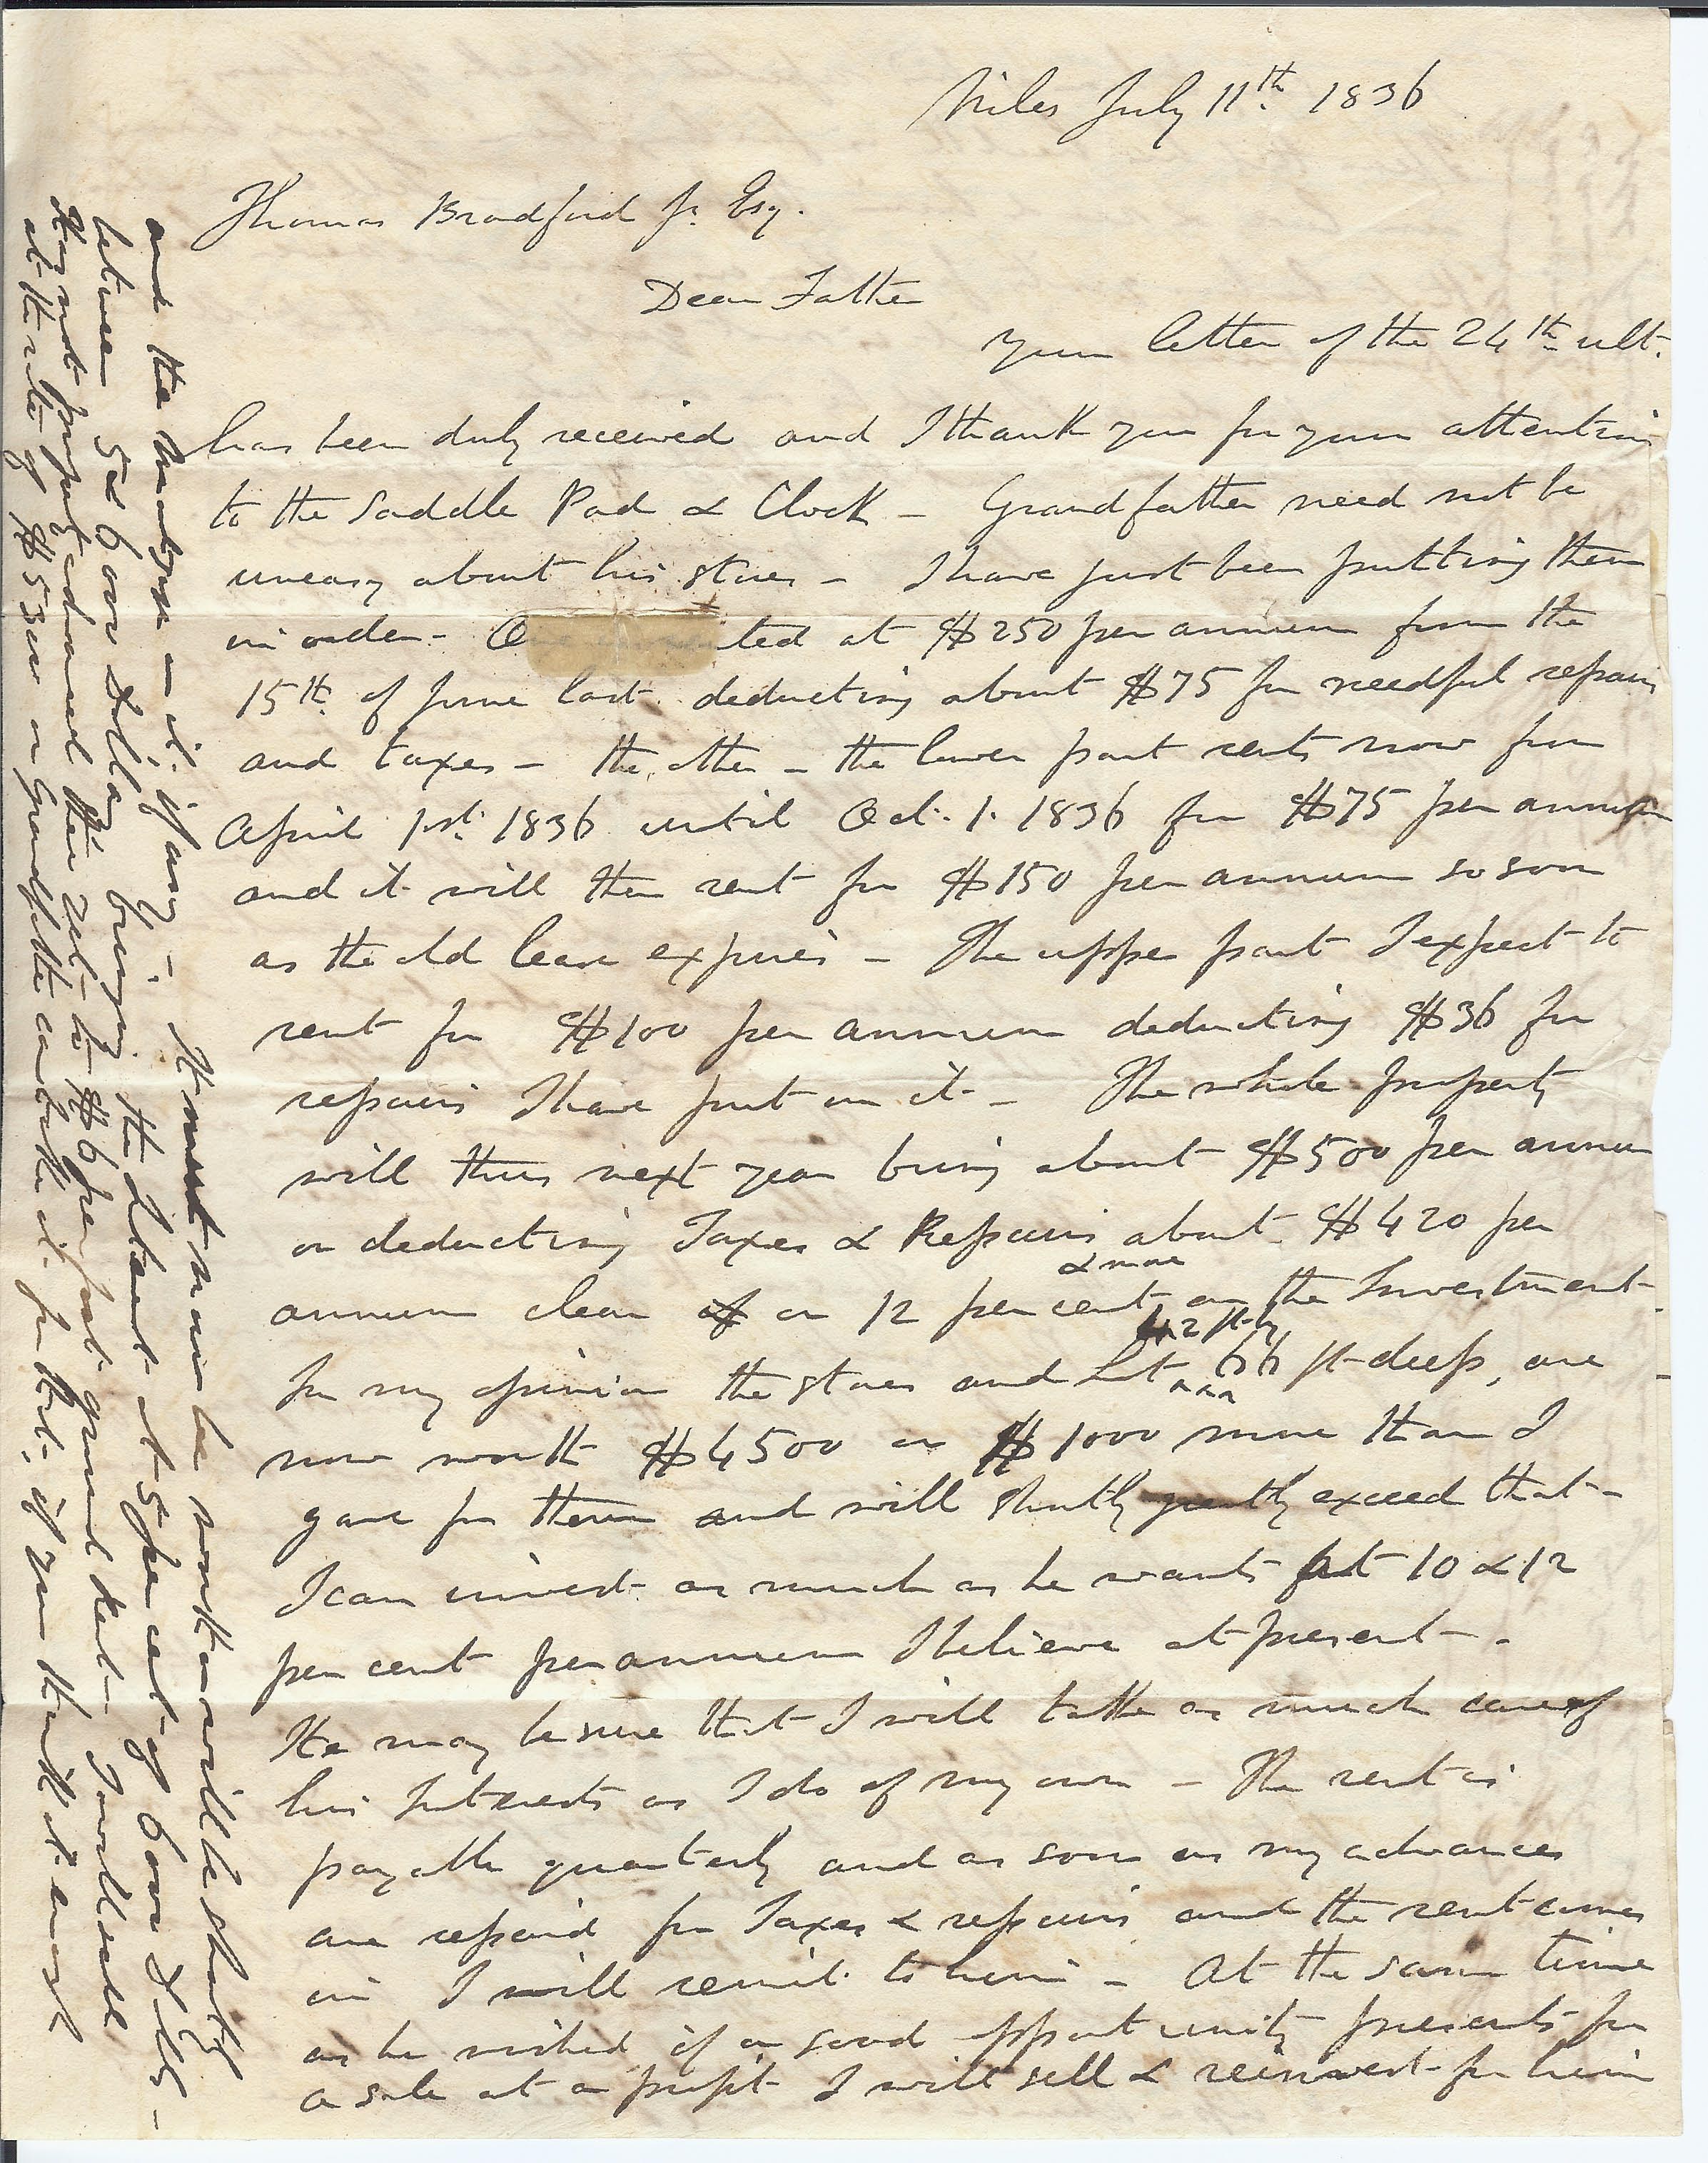 Niles July 11th. 1836
Thomas Bradford Jr. Esq.
Dear Father
your letter of the 24th. ult.
has been duly received and I thank you for your attention
to the Saddle Pad & Clock – Grandfather need not be
uneasy about his stores – I have just been putting them
in order – One ted at $250 per annum from the
15th. of June last. deducting about $75 for needful repairs
and taxes – the other – the lower part rents now from
April 1st. 1836 until Oct. 1. 1836 for $75 per annum
and it will then rent for $150 per annum so soon
as the old lease expires – The upper part I expect to
rent for $100 per annum deducting $36 for
repairs I have put on it – The whole property
will thus next year bring about $500 per annum
or deducting Taxes & Repairs about $420 per
& more
annum clear or 12 per cent on the Investment.
42 ft by
In my opinion the stores and Lot 66 ft deep, are
now worth $4500 or $1000 more than I
gave for them and will shortly greatly exceed that –
I can invest as much as he wants at 10 & 12
per cent per annum I believe at present –
He may be sure that I will take as much care of
his Interests as I do of my own – The rent is
payable quarterly and as soon as my advances
are repaid for Taxes & repairs and the rent comes
in I will remit to him – At the same time
as he wished if a good opportunity presents for
a sale at a profit I will sell & reinvest for him
and the on it, if any – It must now be worth or will be shortly
between 5 & 6000 Dollars being the Interest at 5 per cent of 6000 Dolls –
Has not property advanced there yet to $6 per foot ground Rent – I would sell
at the rate of $5300 or Grandfather can take it for that, if you think it enough